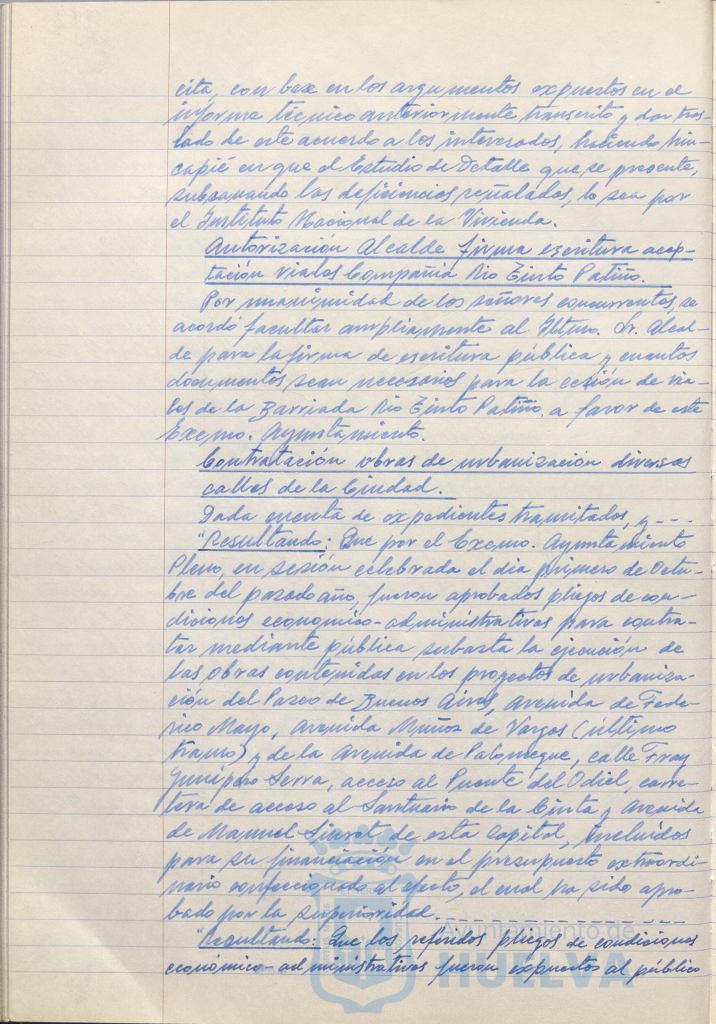 cita, con base en los argumentos expuestos en el
informe técnico anteriormente transcrito y dar tras-
lado de este acuerdo a los interesados, haciendo hin-
capié en que el Estudio de Detalle que se presente,
subsanando las deficiencias señaladas, lo sea por
el Instituto Nacional de la Vivienda.
Autorización Alcalde firma escritura acep-
tación viales Compañía Rio Tinto Patiño.
Por unanimidad de los señores concurrentes, se
acordó facultar ampliamente al Iltmo. Sr. Alcal-
de para la firma de escritura pública y cuantos
documentos sean necesarios para la cesión de via-
les de la Barriada Rio Tinto Patiño, a favor de este
Excmo. Ayuntamiento.
Contratación obras de urbanización diversas
calles de la Ciudad.
Dada cuenta de expedientes tramitados, y - - -
"Resultando: Que por el Excmo. Ayuntamiento
Pleno, en sesión celebrada el dia primero de Octu-
bre del pasado año, fueron aprobados pliegos de con-
diciones economico-administrativas para contra-
tar mediante pública subasta la ejecución de
las obras contenidas en los proyectos de urbaniza-
ción del Paseo de Buenos Aires, Avenida de Fede-
rico Mayo, Avenida Muñoz de Vargas (último
tramo) y de la Avenida de Palomeque, calle Fray
Junípero Serra, acceso al Puente del Odiel, carre-
tera de acceso al Santuario de la Cinta y Avenida
de Manuel Siurot de esta capital, incluidos
para su financiación en el presupuesto extraordi-
nario confeccionado al efecto, el cual ha sido apro-
bado por la superioridad.
"Resultando: Que los referidos pliegos de condiciones
económico-administrativas fueron expuestos al público
Ayuntamiento de
HUELVA